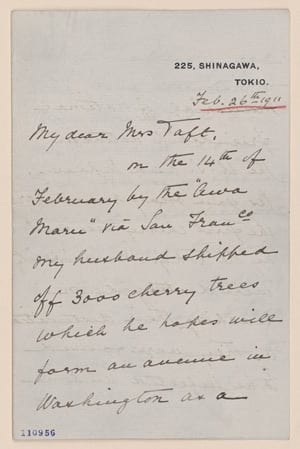 225, SHINAGAWA,
TOKIO.
Feb. 26th 1911
My dear Mrs Taft,
on the 14th of
February by the "Awa
Maru" via San Franco
my husband shipped
off 3000 cherry trees
which he hopes will
form an avenue in
Washington as a
110956